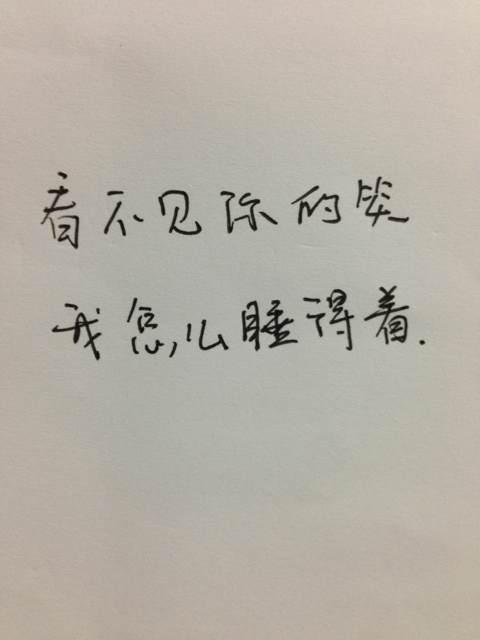 看不见你的笑
我怎么睡得着.